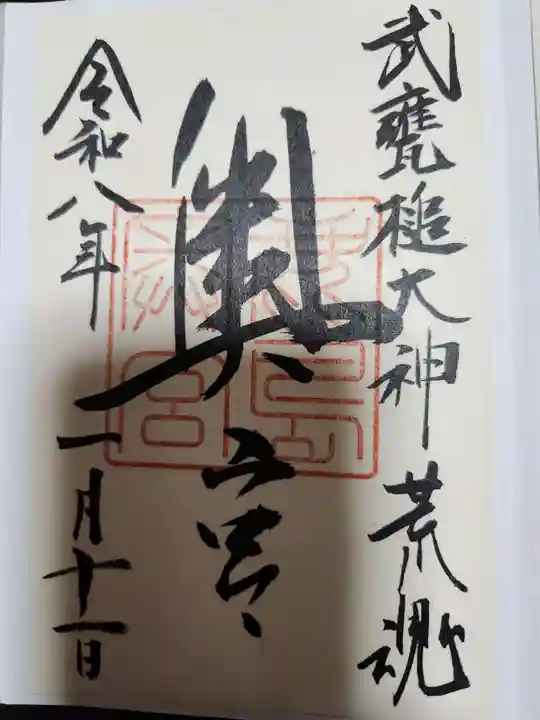 武甕槌大神 荒魂
奥宮
令和八年 一月十一日